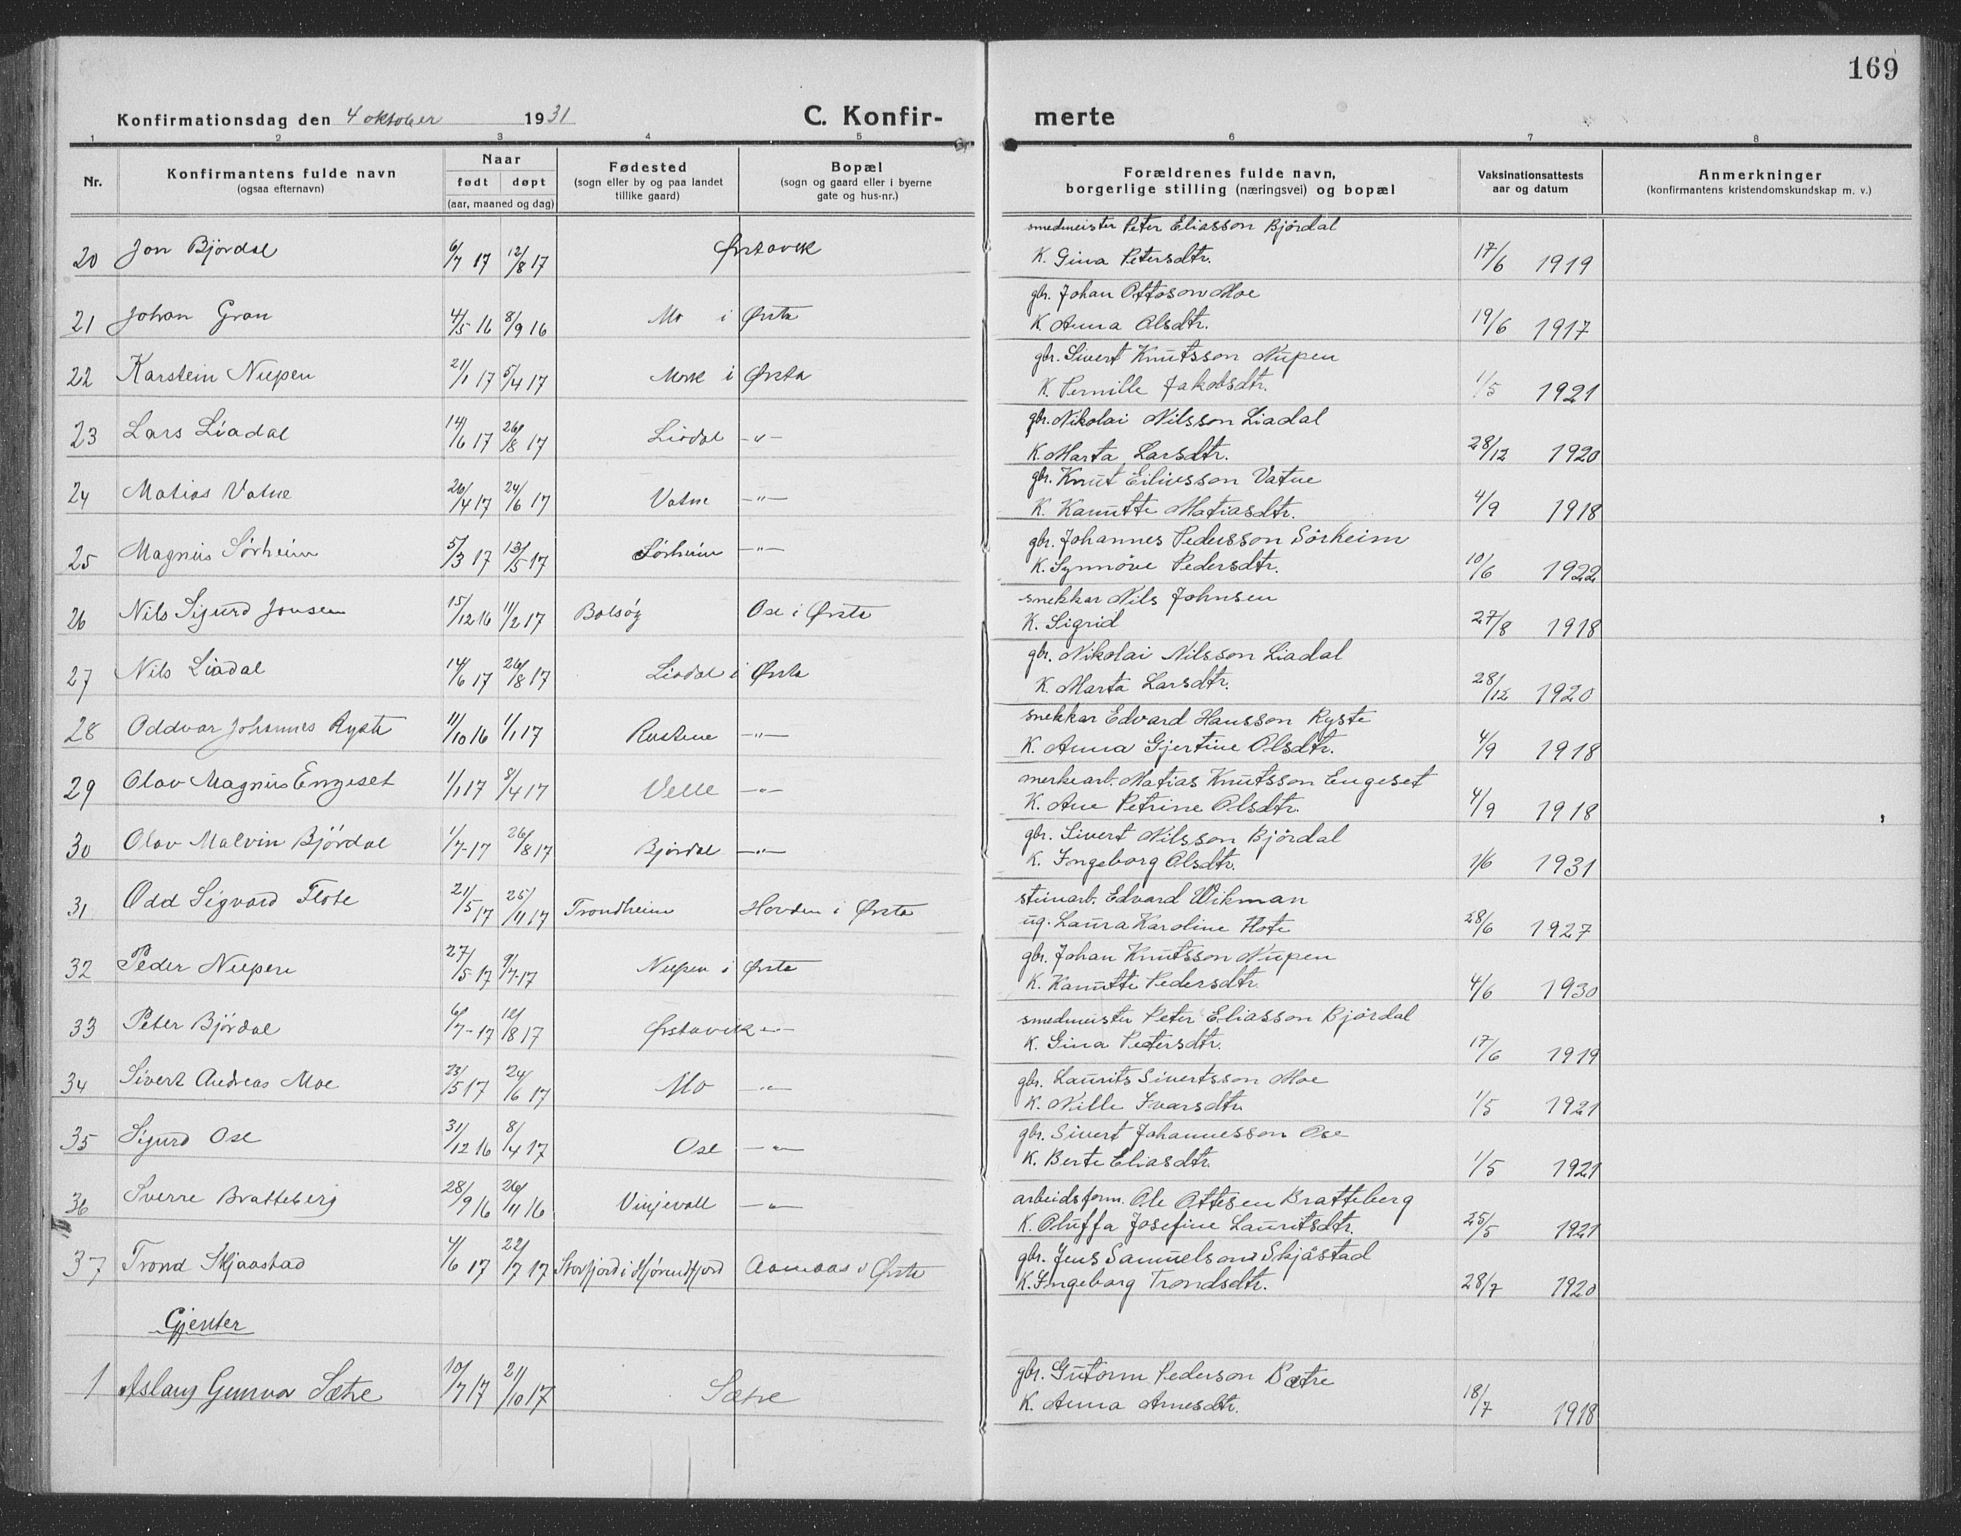 169
Konfirmationsdag den 4 oktober 1931 C. Konfir- merte
1 2 3 4 5 6 7 8
Nr. Konfirmantens fulde navn (ogsaa efternavn) Naar født døpt (aar, maaned og dag) Fødested (sogn eller by og paa landet tillike gaard) Bopæl (sogn og gaard eller i byerne gate og hus-nr.) Forældrenes fulde navn, borgerlige stilling (næringsvei) og bopæl Vaksinationsattests aar og datum Anmerkninger (konfirmantens kristendomskundskap m. v.)
20 Jon Bjørdal 6/7 17 12/8 17 Ørstavik smedmeister Peter Eliasson Bjørdal
K. Gina Petersdtr. 17/6 1919
21 Johan Gran 4/5 16 8/9 16 Mo i Ørsta gbr. Johan Ottoson Moe
K. Anna Olsdtr. 19/6 1917
22 Karstein Nupen 21/1 17 5/4 17 Mork i Ørsta gbr. Sivert Knutsson Nupen
K. Pernille Jakobsdtr. 1/5 1921
23 Lars Liadal 14/6 17 26/8 17 Liadal -"- gbr. Nikolai Nilsson Liadal
K. Marta Larsdtr. 28/12 1920
24 Matias Vatne 20/4 17 24/6 17 Vatne -"- gbr. Knut Eiliusson Vatne
K. Kanutte Matiasdtr. 4/9 1918
25 Magnus Sørheim 5/3 17 13/5 17 Sørheim -"- gbr. Johannes Pedersson Sörheim
K. Synnöve Pedersdtr. 10/6 1922
26 Nils Sigurd Jonsen 15/12 16 11/2 17 Bolsøy Ose i Ørsta snekkar Nils Johnsen
K. Sigrid 27/8 1918
27 Nils Liadal 14/6 17 26/8 17 Liadal i Ørsta gbr. Nikolai Nilsson Liadal
K. Marta Larsdtr. 28/12 1920
28 Oddvar Johannes Ryste 11/10 16 1/1 17 Rustene -"- snekkar Edvard Hansson Ryste
K. Anna Gjertine Olsdtr. 4/9 1918
29 Olav Magnus Engeset 1/1 17 8/4 17 Velle -"- merkearb. Matias Knutsson Engeset
K. Ane Petrine Olsdtr. 4/9 1918
30 Olav Malvin Bjørdal 1/7-17 26/8 17 Bjørdal -"- gbr. Sivert Nilsson Björdal
K. Ingeborg Olsdtr. 1/6 1931
31 Odd Sigvard Flote 21/5 17 25/11 17 Trondheim Hovden i Ørsta steinarb. Edvard Wikman
ug. Laura Karoline Flote 28/6 1927
32 Peder Nupen 27/5 17 9/7-17 Nupen i Ørsta gbr. Johan Knutsson Nupen
K. Kanutte Pedersdtr. 4/6 1930
33 Peter Bjørdal 6/7-17 12/8 17 Ørstavik -"- smedmeister Peter Eliasson Björdal
K. Gina Petersdtr. 17/6 1919
34 Sivert Andreas Moe 23/5 17 24/6 17 Mo -"- gbr. Laurits Sivertsson Moe
K. Nille Ivarsdtr. 1/5 1921
35 Sigurd Ose 31/12 16 8/4 17 Ose -"- gbr. Sivert Johannesson Ose
K. Berte Eliasdtr. 1/5 1921
36 Sverre Bratteberg 28/9 16 26/11 16 Vinjevoll -"- arbeidsform. Ole Ottesen Bratteberg
K. Oluffa Josefine Lauritsdtr. 25/5 1921
37 Trond Skjaastad 4/6 17 22/7 17 Storfjord i Hjørundfjord Aamaas i Ørsta gbr. Jens Samuelson Skjåstad
K. Ingeborg Trondsdtr. 28/7 1920
Gjenter
1 Aslaug Gunvor Sætre 10/7 17 21/10 17 Sætre gbr. Gutorm Pederson Sætre
K. Anna Arnesdtr. 18/7 1918